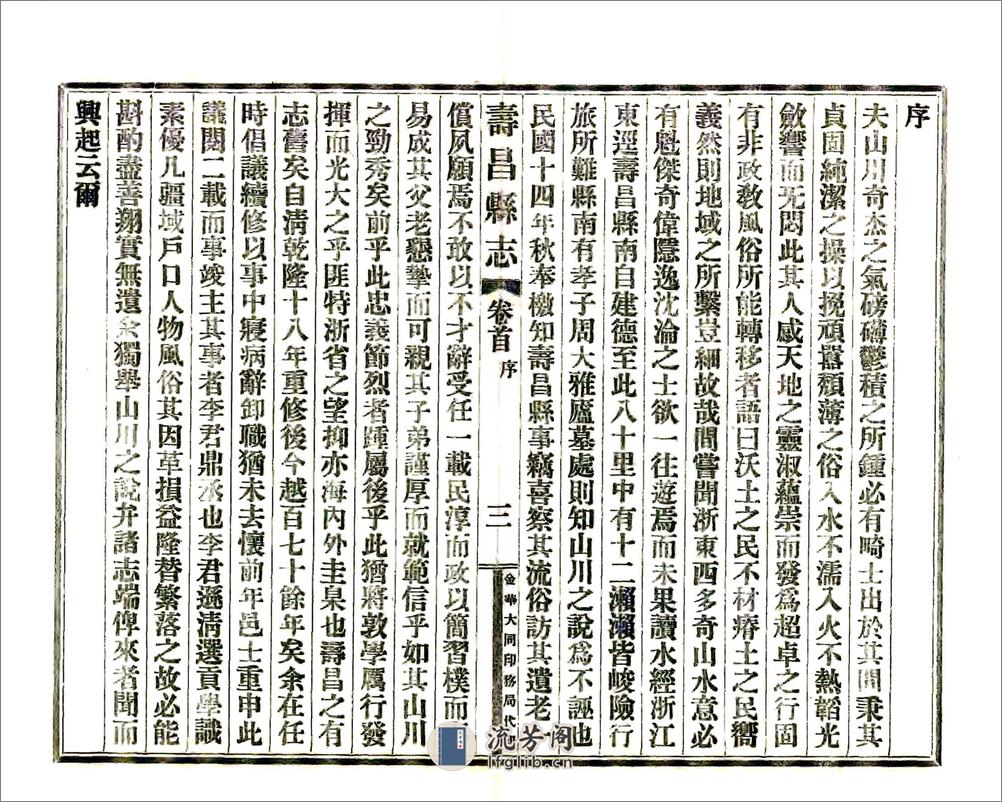 序
夫山川奇杰之氣磅礴鬱積之所鍾必有畸士出於其間秉其
貞固純潔之操以挽頑嚚頹薄之俗入水不濡入火不熱韜光
斂響而无悶此其人感天地之靈淑蘊崇而發爲超卓之行固
有非政教風俗所能轉移者語曰沃土之民不材瘠土之民嚮
義然則地域之所繫豈細故哉間嘗聞浙東西多奇山水意必
有魁傑奇偉隱逸沈淪之士欲一往遊焉而未果讀水經浙江
東逕壽昌縣南自建德至此八十里中有十二瀨瀨皆峻險行
旅所難縣南有孝子周大雅廬墓處則知山川之說爲不誣也
民國十四年秋奉檄知壽昌縣事竊喜察其流俗訪其遺老
壽昌縣志 卷首 序 三 金華大同印務局代
償夙願焉不敢以不才辭受任一載民淳而政以簡習樸而
易成其父老懇摯而可親其子弟謹厚而就範信乎如其山川
之勁秀矣前乎此忠義節烈者踵屬後乎此猶將敦學厲行發
揮而光大之乎匪特浙省之望抑亦海內外圭臬也壽昌之有
志舊矣自清乾隆十八年重修後今越百七十餘年矣余在任
時倡議續修以事中寢病辭卸職猶未去懷前年邑士重申此
議閱二載而事竣主其事者李君鼎丞也李君遜清選貢學識
素優凡疆域戶口人物風俗其因革損益隆替繁落之故必能
斟酌盡善翔實無遺余獨舉山川之說弁諸志端俾來者聞而
興起云爾
流芳阁
lfglib.cn